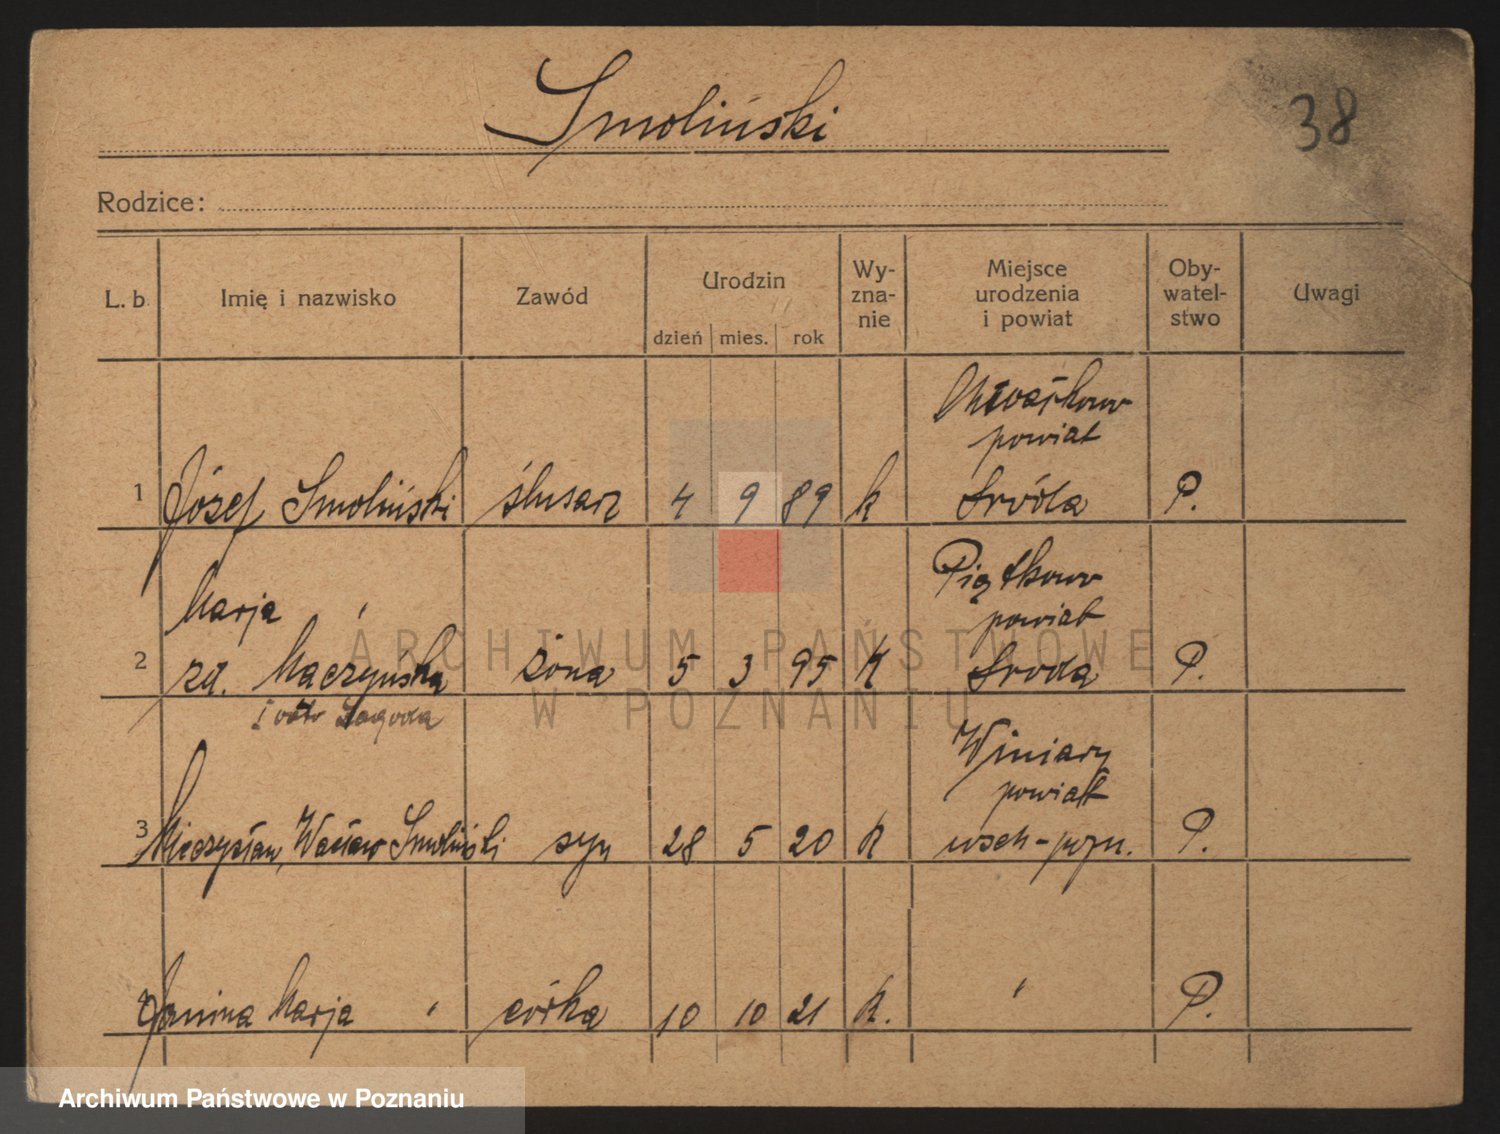 Smoliński
38
Rodzice:
L. b. Imię i nazwisko Zawód Urodzin Wy-zna-nie Miejsce urodzenia i powiat Oby-watel-stwo Uwagi
dzień mies. rok
powiat
1 Józef Smoliński ślusarz 4 9 89 k Środa P.
Marja " Piątkowo
powiat
2 zd. Maczyńska żona 5 3 95 K Środa P.
Winiary
powiat
3 Mieczysław, Wacław Smoliński syn 28 5 20 K wsch-pozn. P.
Janina Marja " córka 10 10 21 K. " P.
ARCHIWUM PAŃSTWOWE
W POZNANIU
Archiwum Państwowe w Poznaniu